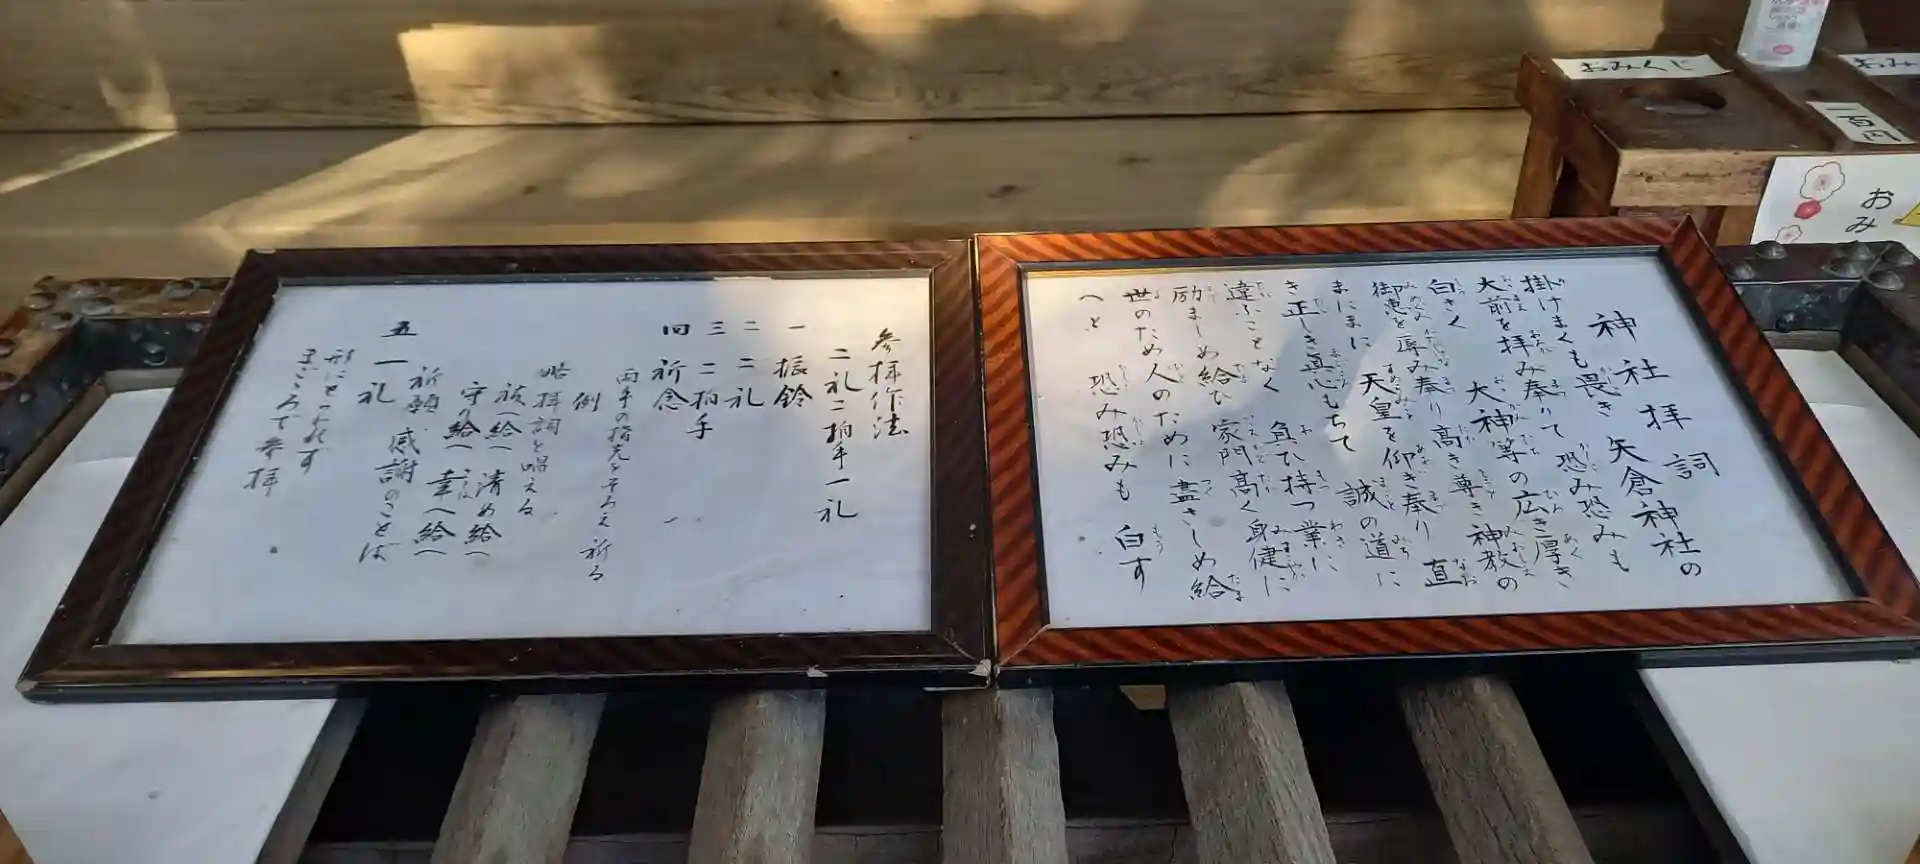 神社拝詞
掛けまくも畏き 矢倉神社の
大前を拝み奉りて 恐み恐みも
白さく 大神等の広き厚き
御恵を辱み奉り高き尊き神教の
まにまに 天皇を仰ぎ奉り 直
き正しき真心もちて 誠の道に
違ふことなく 負ひ持つ業に
励ましめ給ひ 家門高く身健に
世のため人のために盡さしめ給
へと 恐み恐みも 白す
参拝作法
二礼二拍手一礼
一 振鈴
二 二礼
三 二拍手
四 祈念
両手の指先をそろえ祈る
例
略拝詞を唱える
祓へ給へ 清め給へ
守り給へ 幸へ給へ
祈願 感謝のことば
五 一礼
形にとらわれず
まごころで参拝
おみくじ
おみ